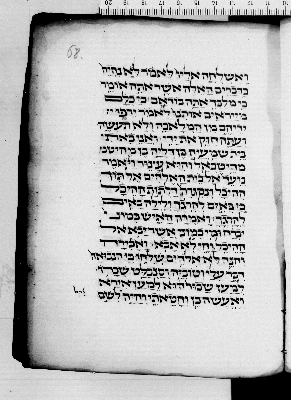 68.
ואשלחה אליו לאמר לא נהיה
כדברים האלה אשר אתה אומר
כי מלבך אתה בודאם כי כלם
מייראים אותנו לאמר ירפו י
ידיהם מן המלאכה ולא תעשה
ועתה חזק את ידי ואני באתי
בית שמעיה בן דליה בן
מהיטבאל והוא עצור ויאמר
נועד אל בית האלהים אל תוך
ההיכל ונסגרה דלתות ההיכל
כי באים להרגך ולילה באים
להרגך ואמרה האיש כמוני
יברח ומי כמוני אשר יבא אל
ההיכל וחי לא אבוא ואכירה
והנה לא אלהים שלחו כי הנבואה
דבר עלי וטוביה וסנבלט שכרו
למען שכור הוא למען אירא
ואעשה כן וחטאתי והיה להם